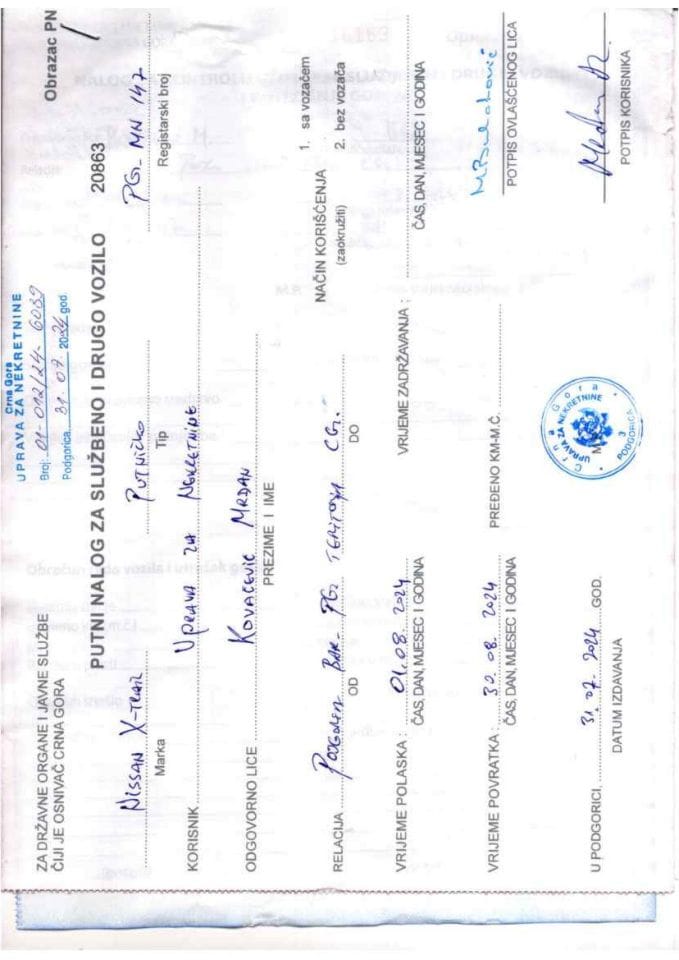 Crna Gora
UPRAVA ZA NEKRETNINE
Broj: 01-012/24-6089
Podgorica, 31.07. 2024 god.
Obrazac PN
1
ZA DRŽAVNE ORGANE I JAVNE SLUŽBE
ČIJI JE OSNIVAČ CRNA GORA
PUTNI NALOG ZA SLUŽBENO I DRUGO VOZILO 20863
NISSAN X-TRAIL PUTNIČKO PG-MN 147
Marka Tip Registarski broj
KORISNIK UPRAVA ZA NEKRETNINE
ODGOVORNO LICE KOVAČEVIĆ MRDAN
PREZIME I IME
NAČIN KORIŠĆENJA
(zaokružiti)
1. sa vozačem
2. bez vozača
RELACIJA BAR- PG, CG.
OD DO
VRIJEME POLASKA : 01.08.2024 VRIJEME ZADRŽAVANJA :
ČAS, DAN, MJESEC I GODINA ČAS, DAN, MJESEC I GODINA
VRIJEME POVRATKA : 30.08.2024 PREĐENO KM-M.Č.
ČAS, DAN, MJESEC I GODINA
POTPIS OVLAŠĆENOG LICA
U PODGORICI, 31.07.2024 GOD.
DATUM IZDAVANJA
Crna Gora
UPRAVA ZA NEKRETNINE
3
PODGORICA
POTPIS KORISNIKA